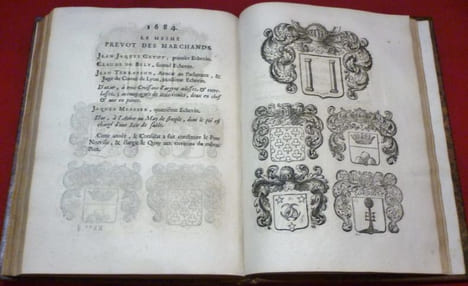 1684.
LE MESME
PREVOT DES MARCHANDS.
JEAN JAQUES, premier Echevin.
CLAUDE DE BELY, second Echevin.
JEAN TERRASSON, Avocat au Parlement, &
Juge du Comté de Lyon, troisième Echevin.
D'azur, à trois Croissans d'argent
& accompagnez de trois deux en chef
& une en pointe.
JAQUES, quatrième Echevin.
D'or, à l'Arbre ou de sinople, dont le pié est
chargé d'un de sable.
Cette année, le Consulat a fait construire le Port
Neuville, & élargir le Quay aux environs du même
Port.